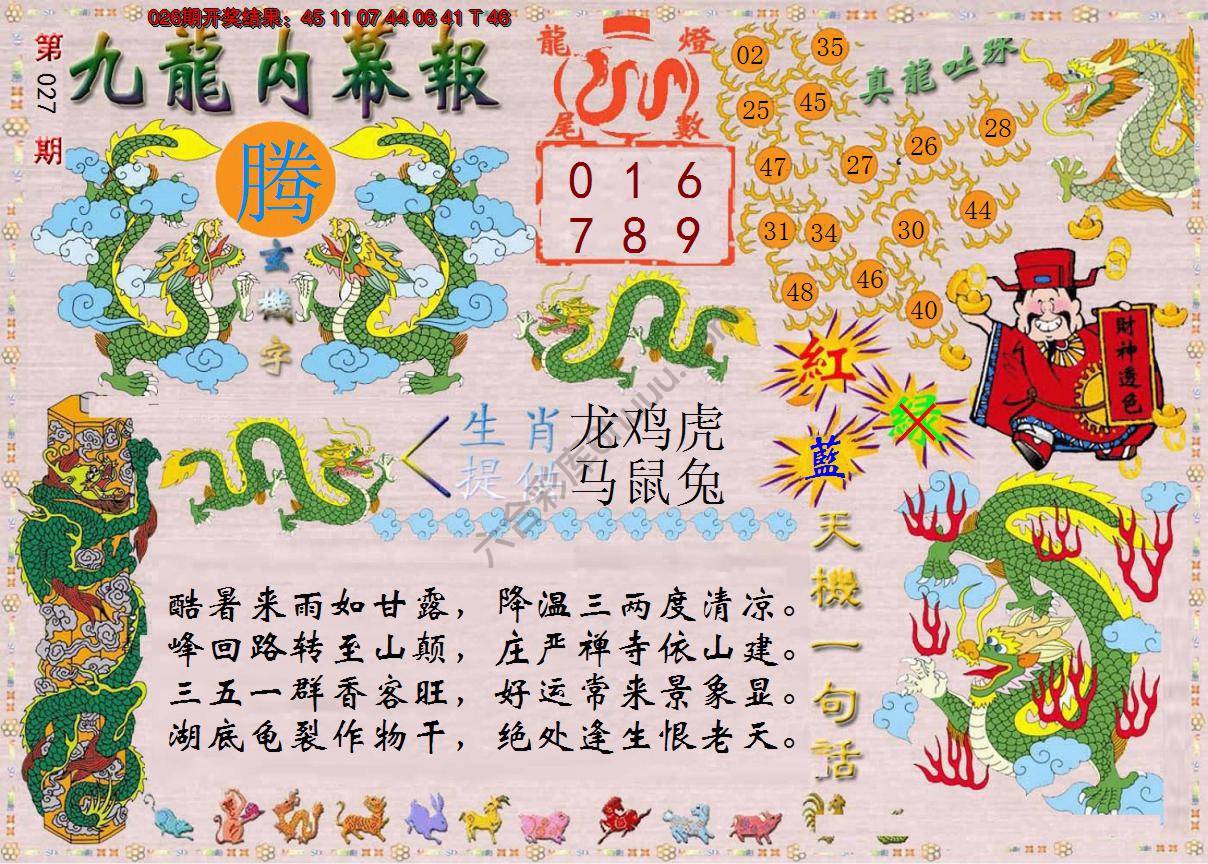 026期开奖结果：45 11 07 44 06 41 T 46
第027期
九龍内幕報
腾
玄機字
龍燈
尾數
0 1 6
7 8 9
真龍吐珠
02 35
25 45
47 27 26 28
31 34 30 44
48 46 40
財神透色
紅
绿
藍
生肖 龙鸡虎
提供 马鼠兔
天機一句話
酷暑来雨如甘露，降温三两度清凉。
峰回路转至山颠，庄严禅寺依山建。
三五一群香客旺，好运常来景象显。
湖底龟裂作物干，绝处逢生恨老天。